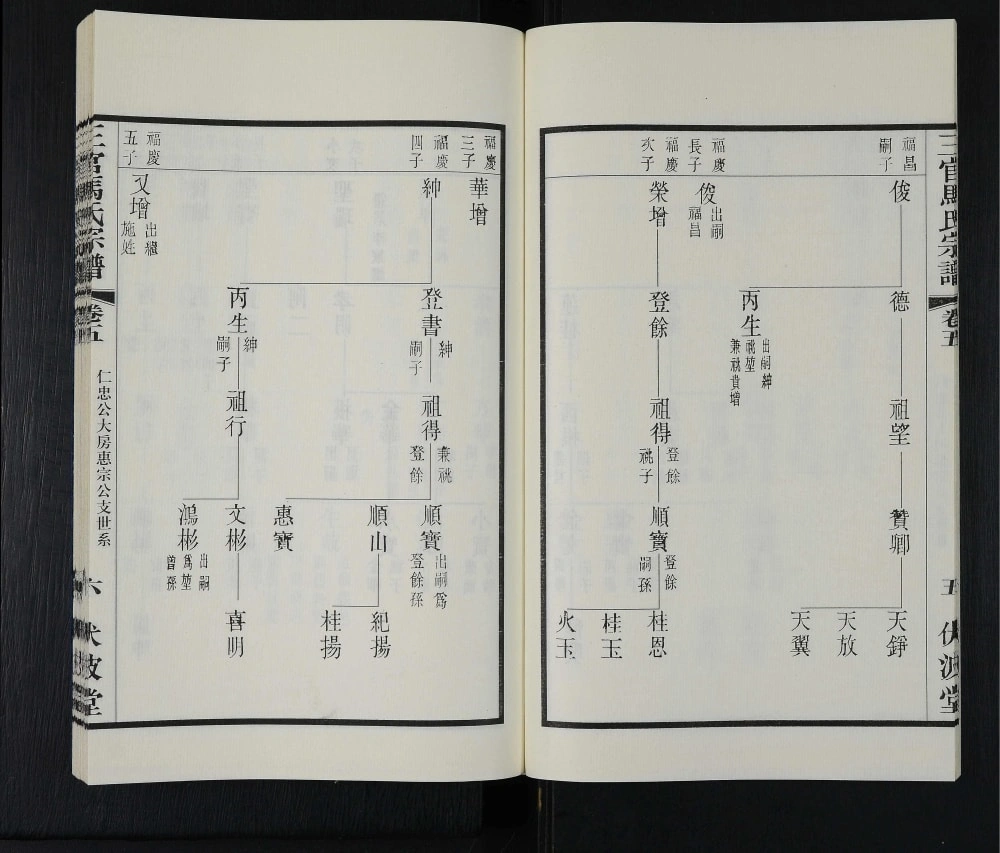 三官馬氏宗譜
卷五
五
伏波堂
福昌
嗣子
俊
德
祖望
贊卿
天錚
天放
天翼
丙生
出嗣紳
祧堃
兼祧貴增
福慶
長子
俊
出嗣
福昌
福慶
次子
榮增
登餘
祖得
登餘
祧子
順寶
登餘
嗣孫
桂恩
桂玉
火玉
福慶
三子
華增
福慶
四子
紳
登書
紳
嗣子
祖得
兼祧
登餘
順寶
出嗣爲
登餘孫
順山
紀揚
桂揚
惠寶
丙生
紳
嗣子
祖行
文彬
喜明
鴻彬
出嗣
爲堃
曾孫
福慶
五子
又增
出繼
施姓
三官馬氏宗譜
卷五
仁忠公大房惠宗公支世系
六
伏波堂